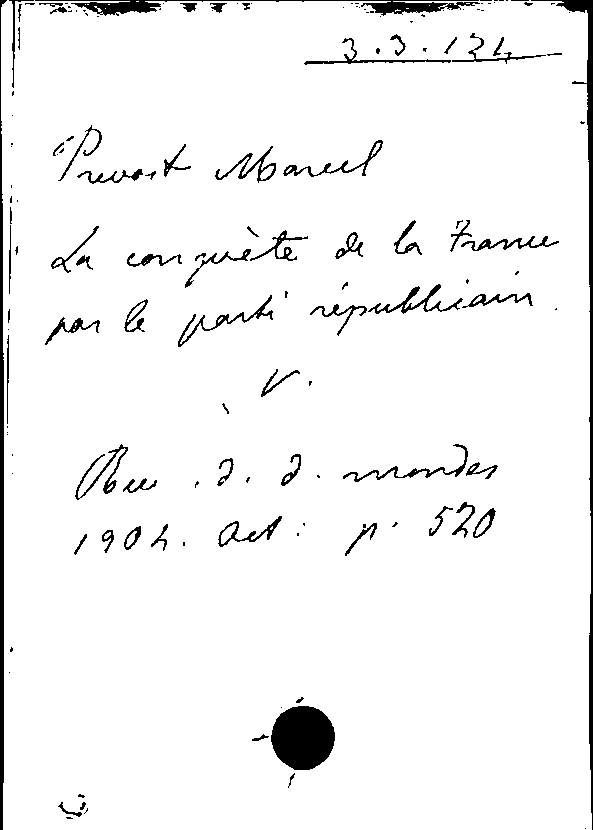 3.3.124
Prevost Marcel
La conquète de la France
par le parti républicain.
V.
Rev. d. d. mondes
1904. Oct: p. 520